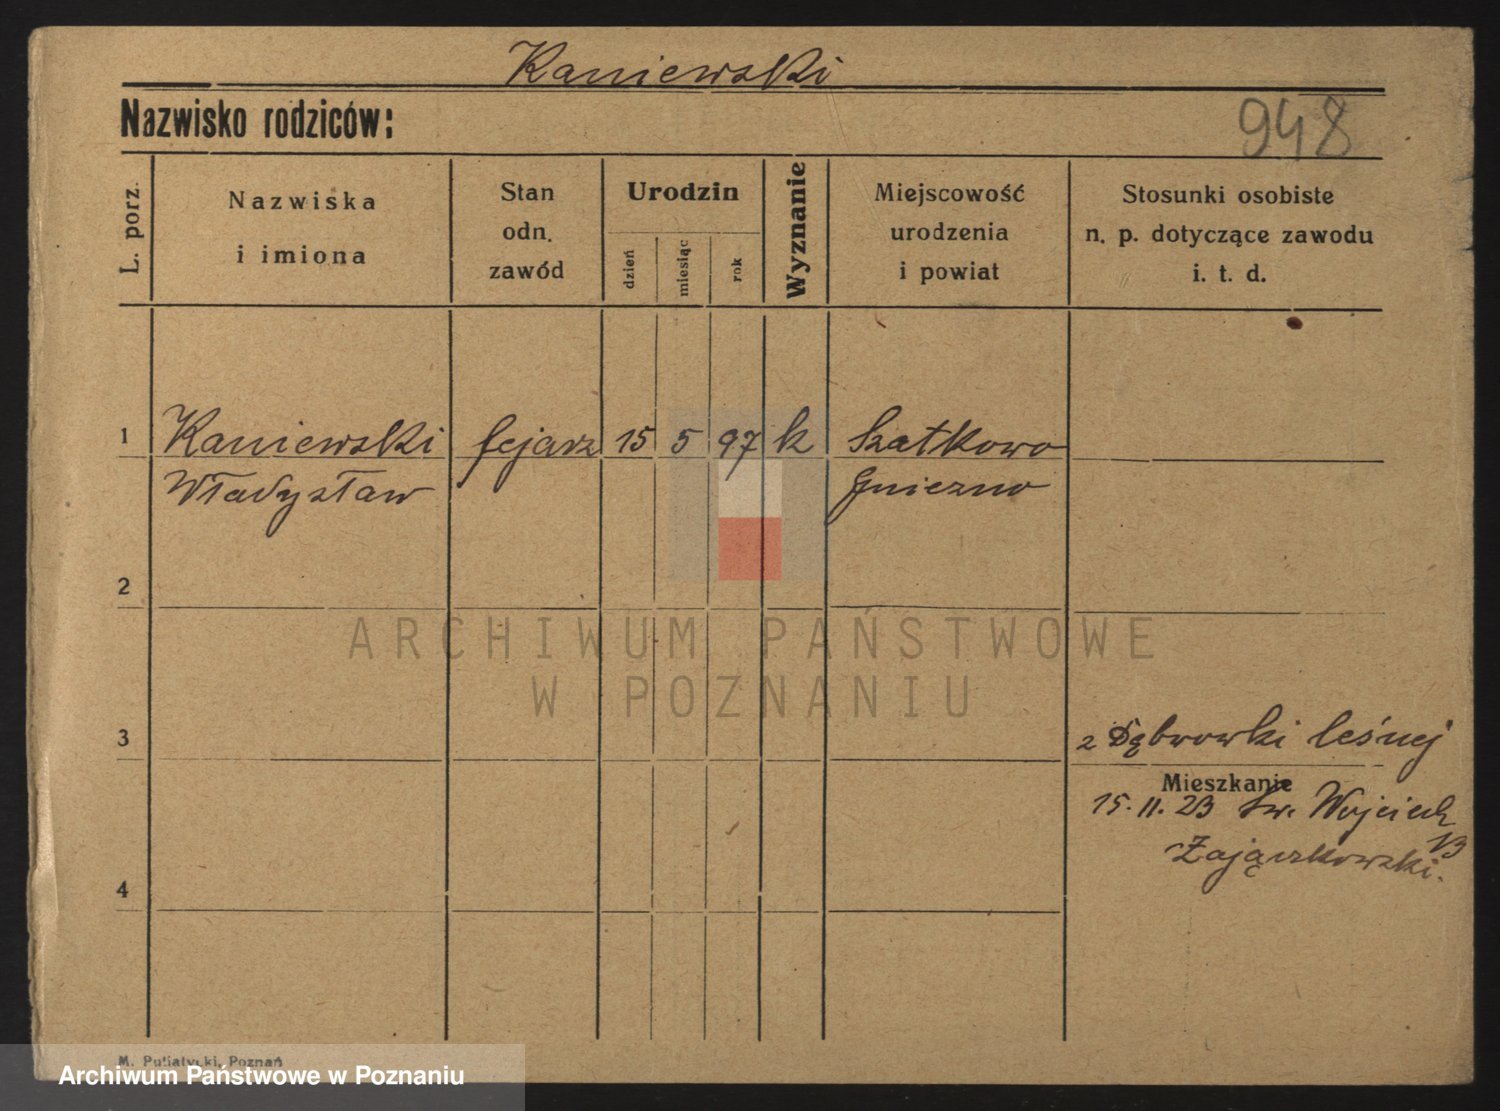 Kaniewski
Nazwisko rodziców:
948
L. porz.
Nazwiska
i imiona
Stan
odn.
zawód
Urodzin
dzień
miesiąc
rok
Wyznanie
Miejscowość
urodzenia
i powiat
Stosunki osobiste
n. p. dotyczące zawodu
i. t. d.
1 Kaniewski fejarz 15 5 97 k
Władysław Gniezno
2
ARCHIWUM PAŃSTWOWE
W POZNANIU
3
z Dąbrowki leśnej
Mieszkanie
15. 11. 23 Św. Wojciech
13
Zajączkowski.
4
M. Putiatycki, Poznań
Archiwum Państwowe w Poznaniu